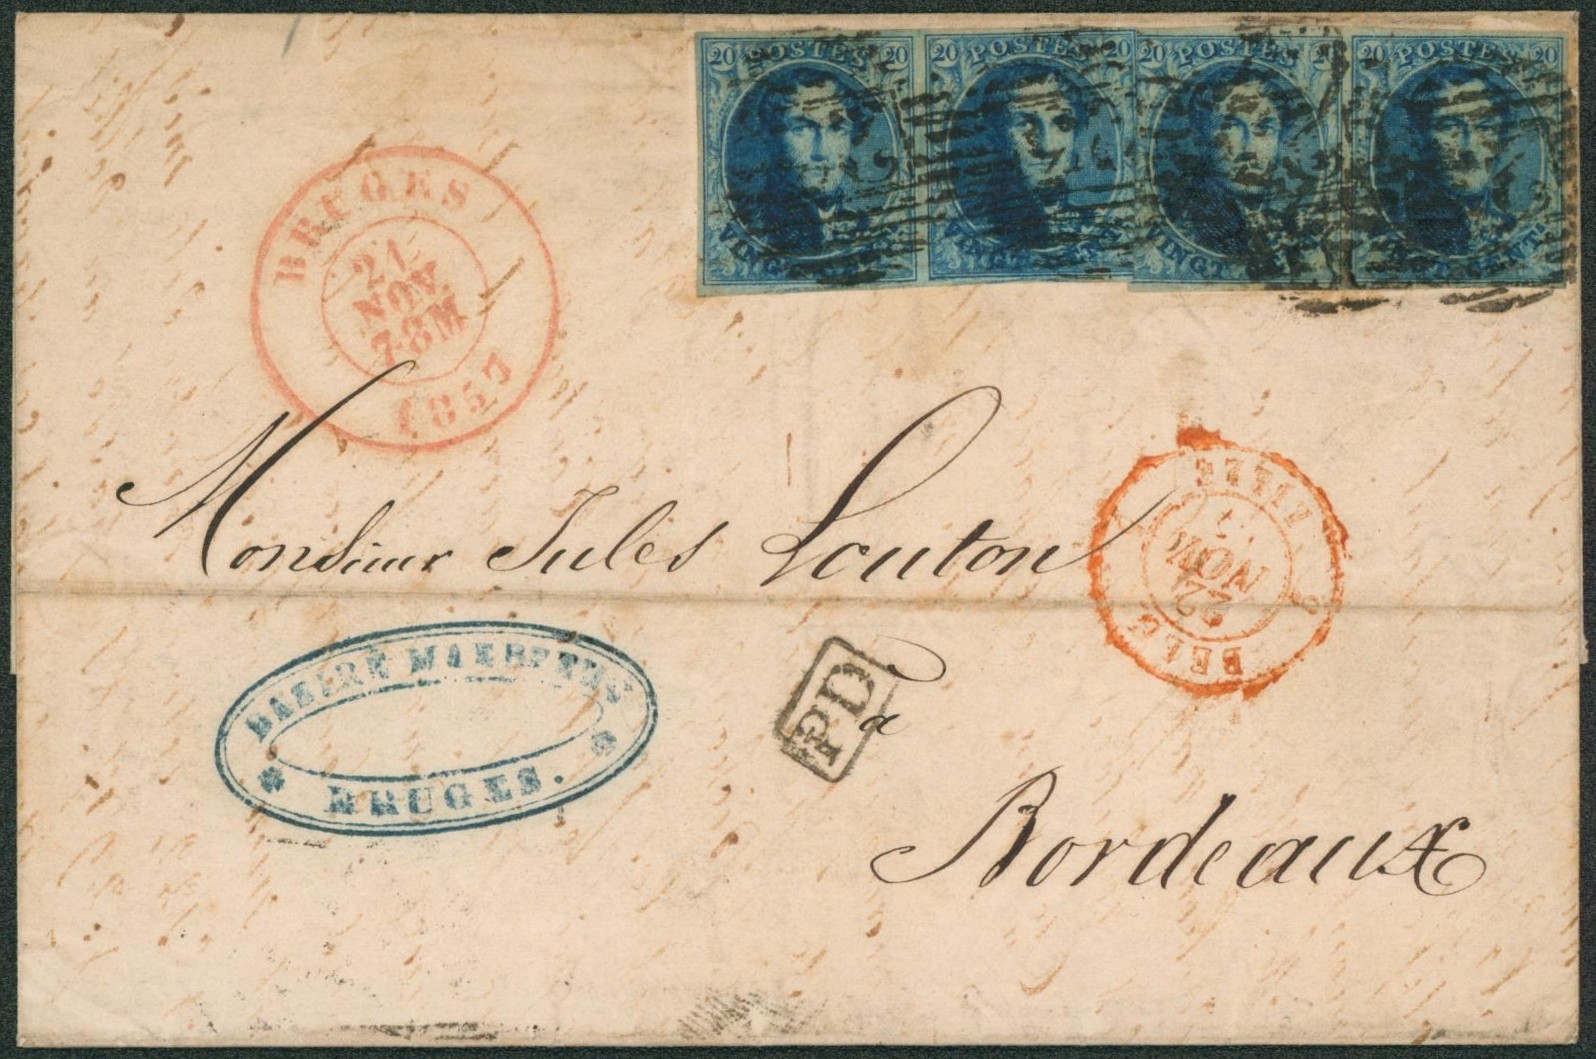 20 POSTES 20
VINGT CENTS
20 POSTES 20
VINGT CENTS
20 POSTES 20
VINGT CENTS
20 POSTES 20
VINGT CENTS
BRUGES
21
NOV.
7-8M
1857
Monsieur Jules Louton
BELG.
22
NOV.
LILLE
PD
à
Bordeaux
BAZIRE
BRUGES.